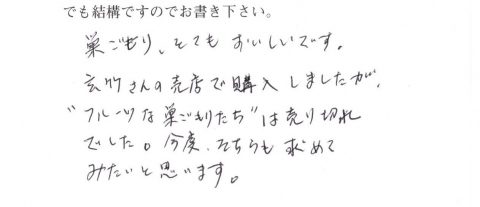 でも結構ですのでお書き下さい。
巣ごもり、とてもおいしいです。
玄竹さんの売店で購入しましたが、
"フルーツな巣ごもりたち"は売り切れ
でした。今度、そちらも求めて
みたいと思います。